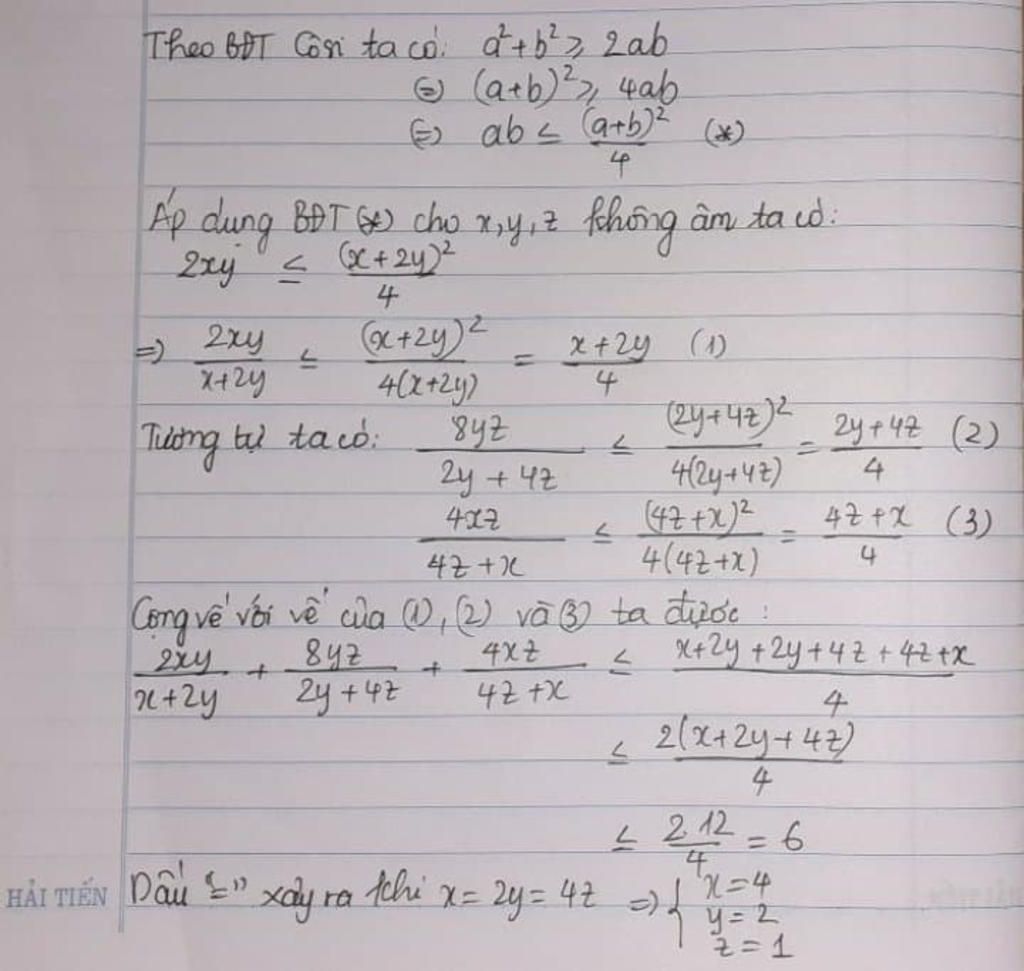 Theo BĐT Côsi ta có: a²+b² ≥ 2ab
⇔ (a+b)² ≥ 4ab
⇔ ab ≤ (a+b)²/4 (*)
Áp dụng BĐT (*) cho x,y,z không âm ta có:
2xy ≤ (x+2y)²/4
⇒ 2xy/(x+2y) ≤ (x+2y)²/4(x+2y) = (x+2y)/4 (1)
Tương tự ta có: 8yz/(2y+4z) ≤ (2y+4z)²/4(2y+4z) = (2y+4z)/4 (2)
4xz/(4z+x) ≤ (4z+x)²/4(4z+x) = (4z+x)/4 (3)
Cộng vế với vế của (1), (2) và (3) ta được:
2xy/(x+2y) + 8yz/(2y+4z) + 4xz/(4z+x) ≤ (x+2y+2y+4z+4z+x)/4
≤ 2(x+2y+4z)/4
≤ 2.12/4 = 6
HẢI TIẾN
Dấu "=" xảy ra khi x=2y=4z ⇒ { x=4
y=2
z=1